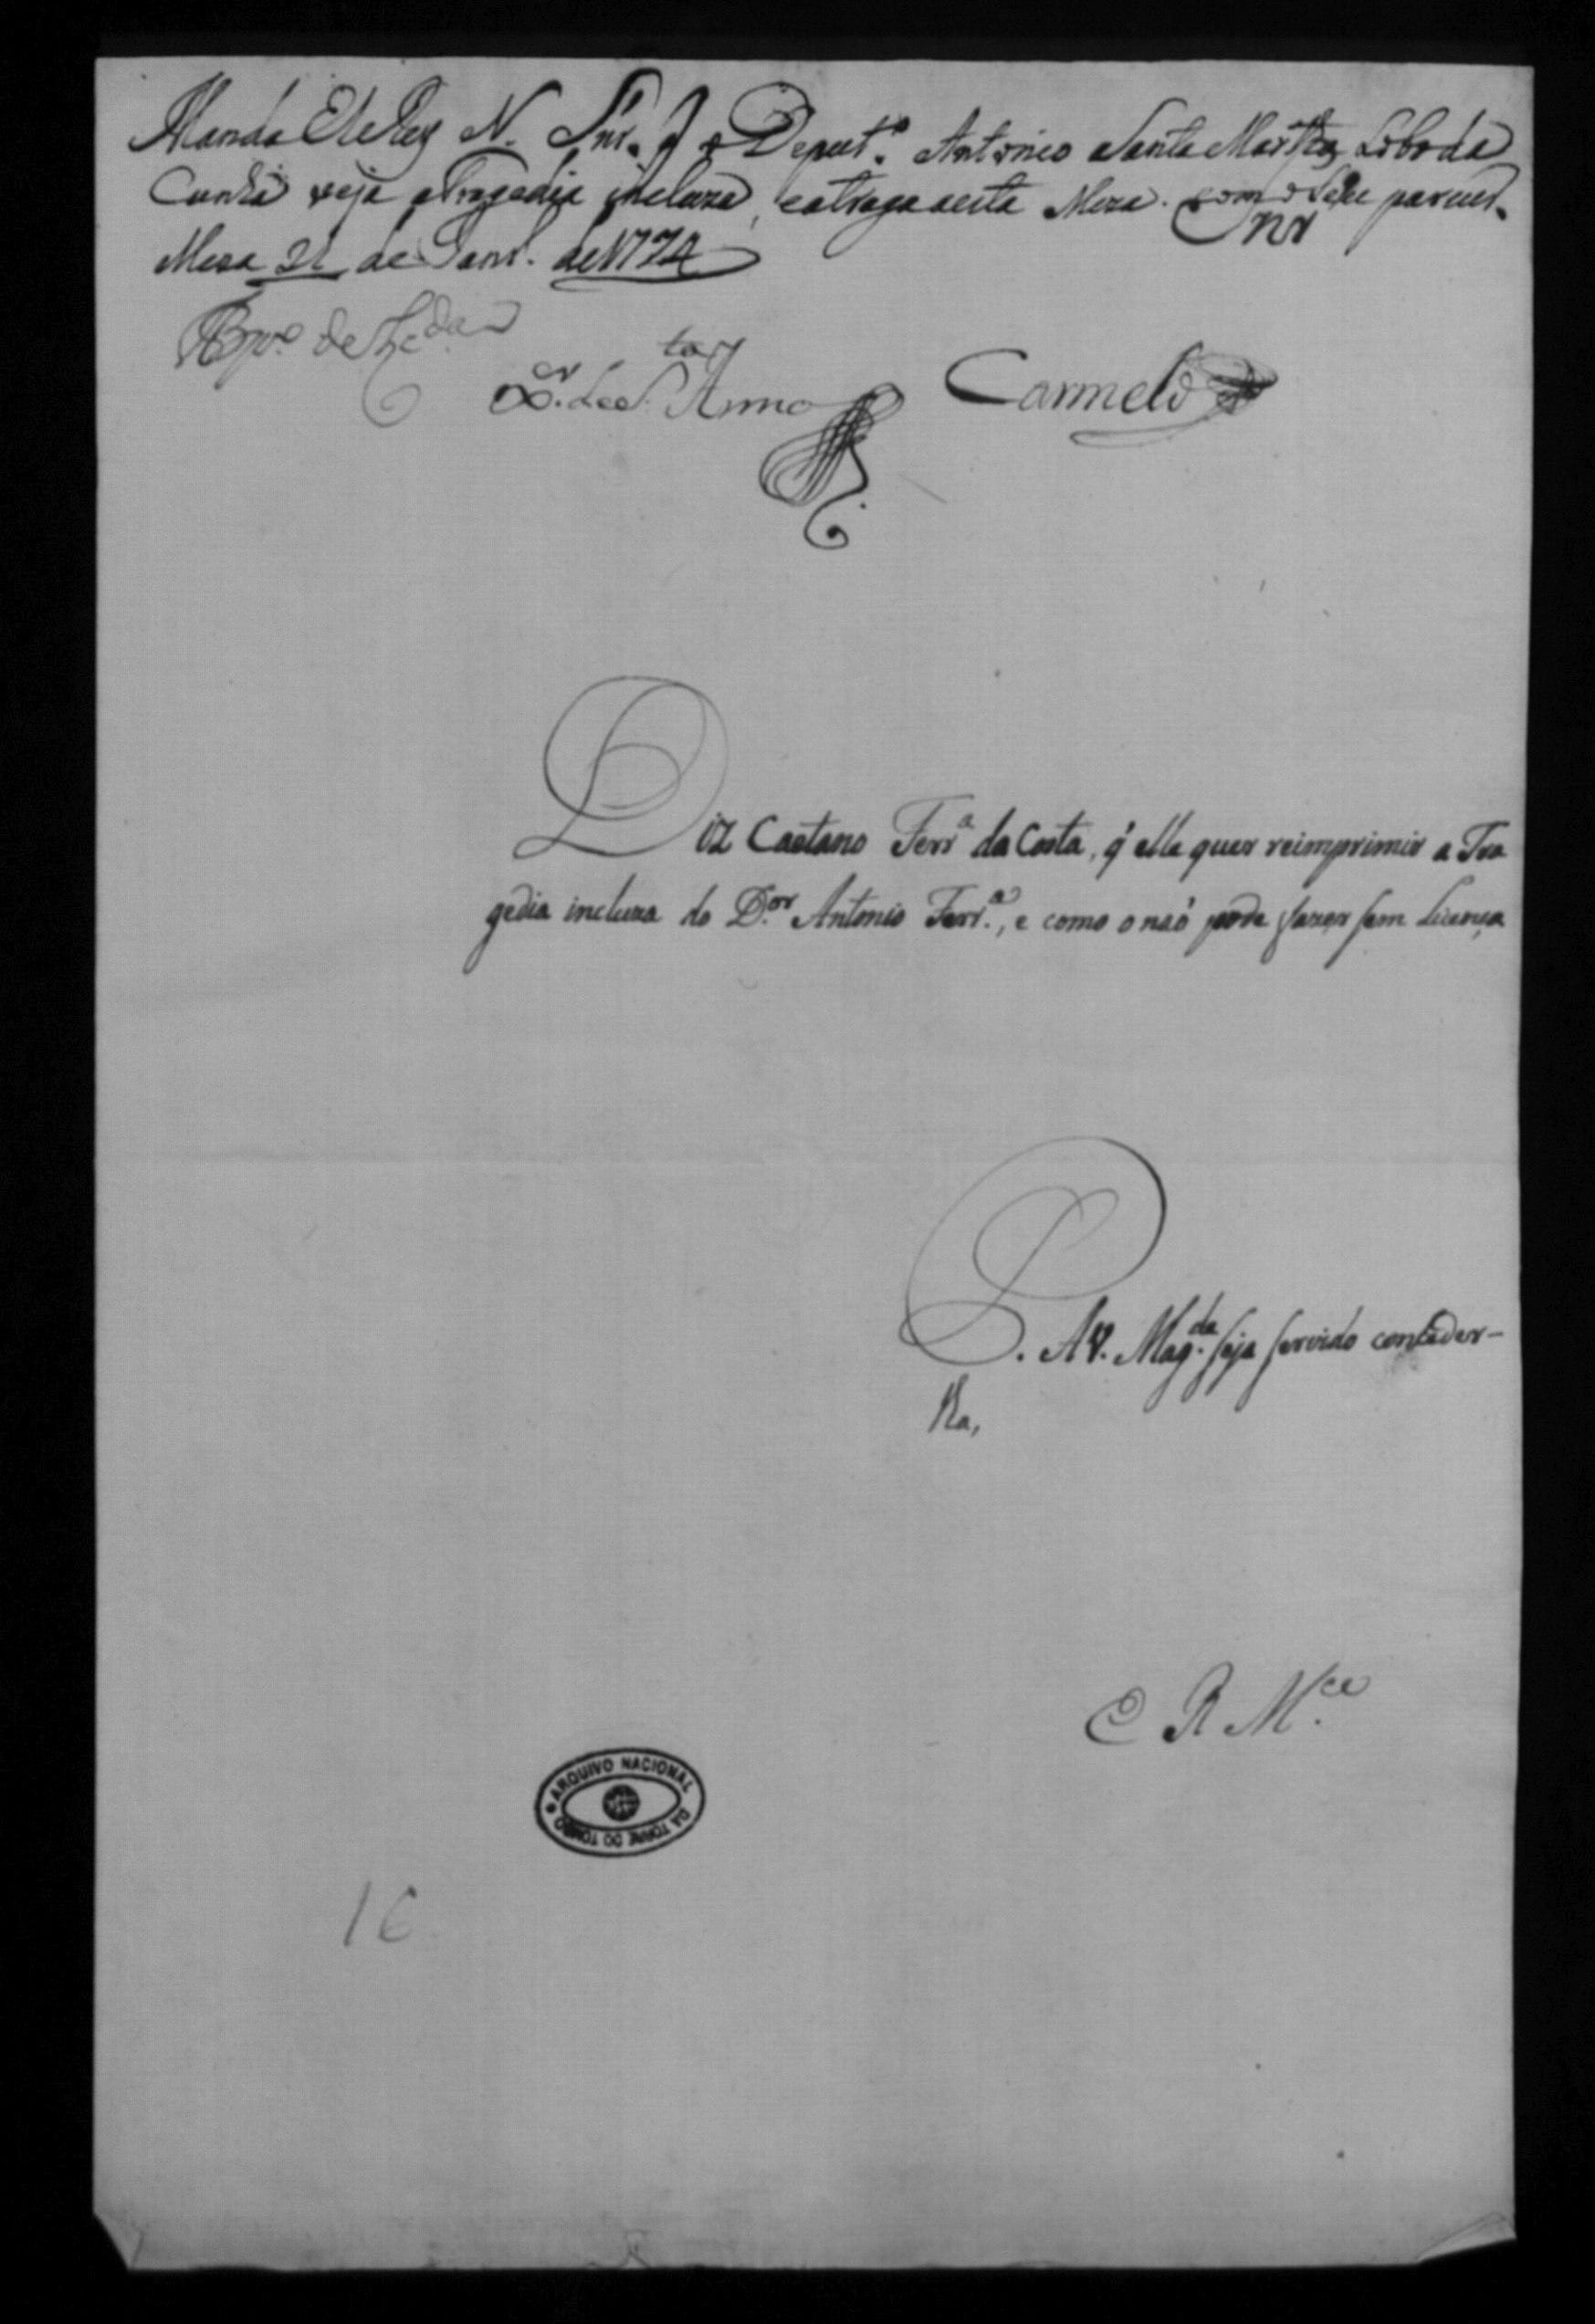 Manda ElRey N. Snr. q̃ o Deput.º Antonio Santa Martha Lobo da
Cunha veja a tragedia incluza, e a traga a esta Meza com o seu parecer.
Meza 21 de Janr.º de 1774
Bpo. de
Xer. de S.ta Anna
Carmelo
Diz Caetano Ferr.ª da Costa, q' elle quer reimprimir a Tra
gedia incluza do D.or Antonio Ferr.ª, e como o naõ pode fazer sem Licença
P. A V. Mag.de seja servido conceder-
lha,
E R M.ce
ARQUIVO NACIONAL DA TORRE DO TOMBO